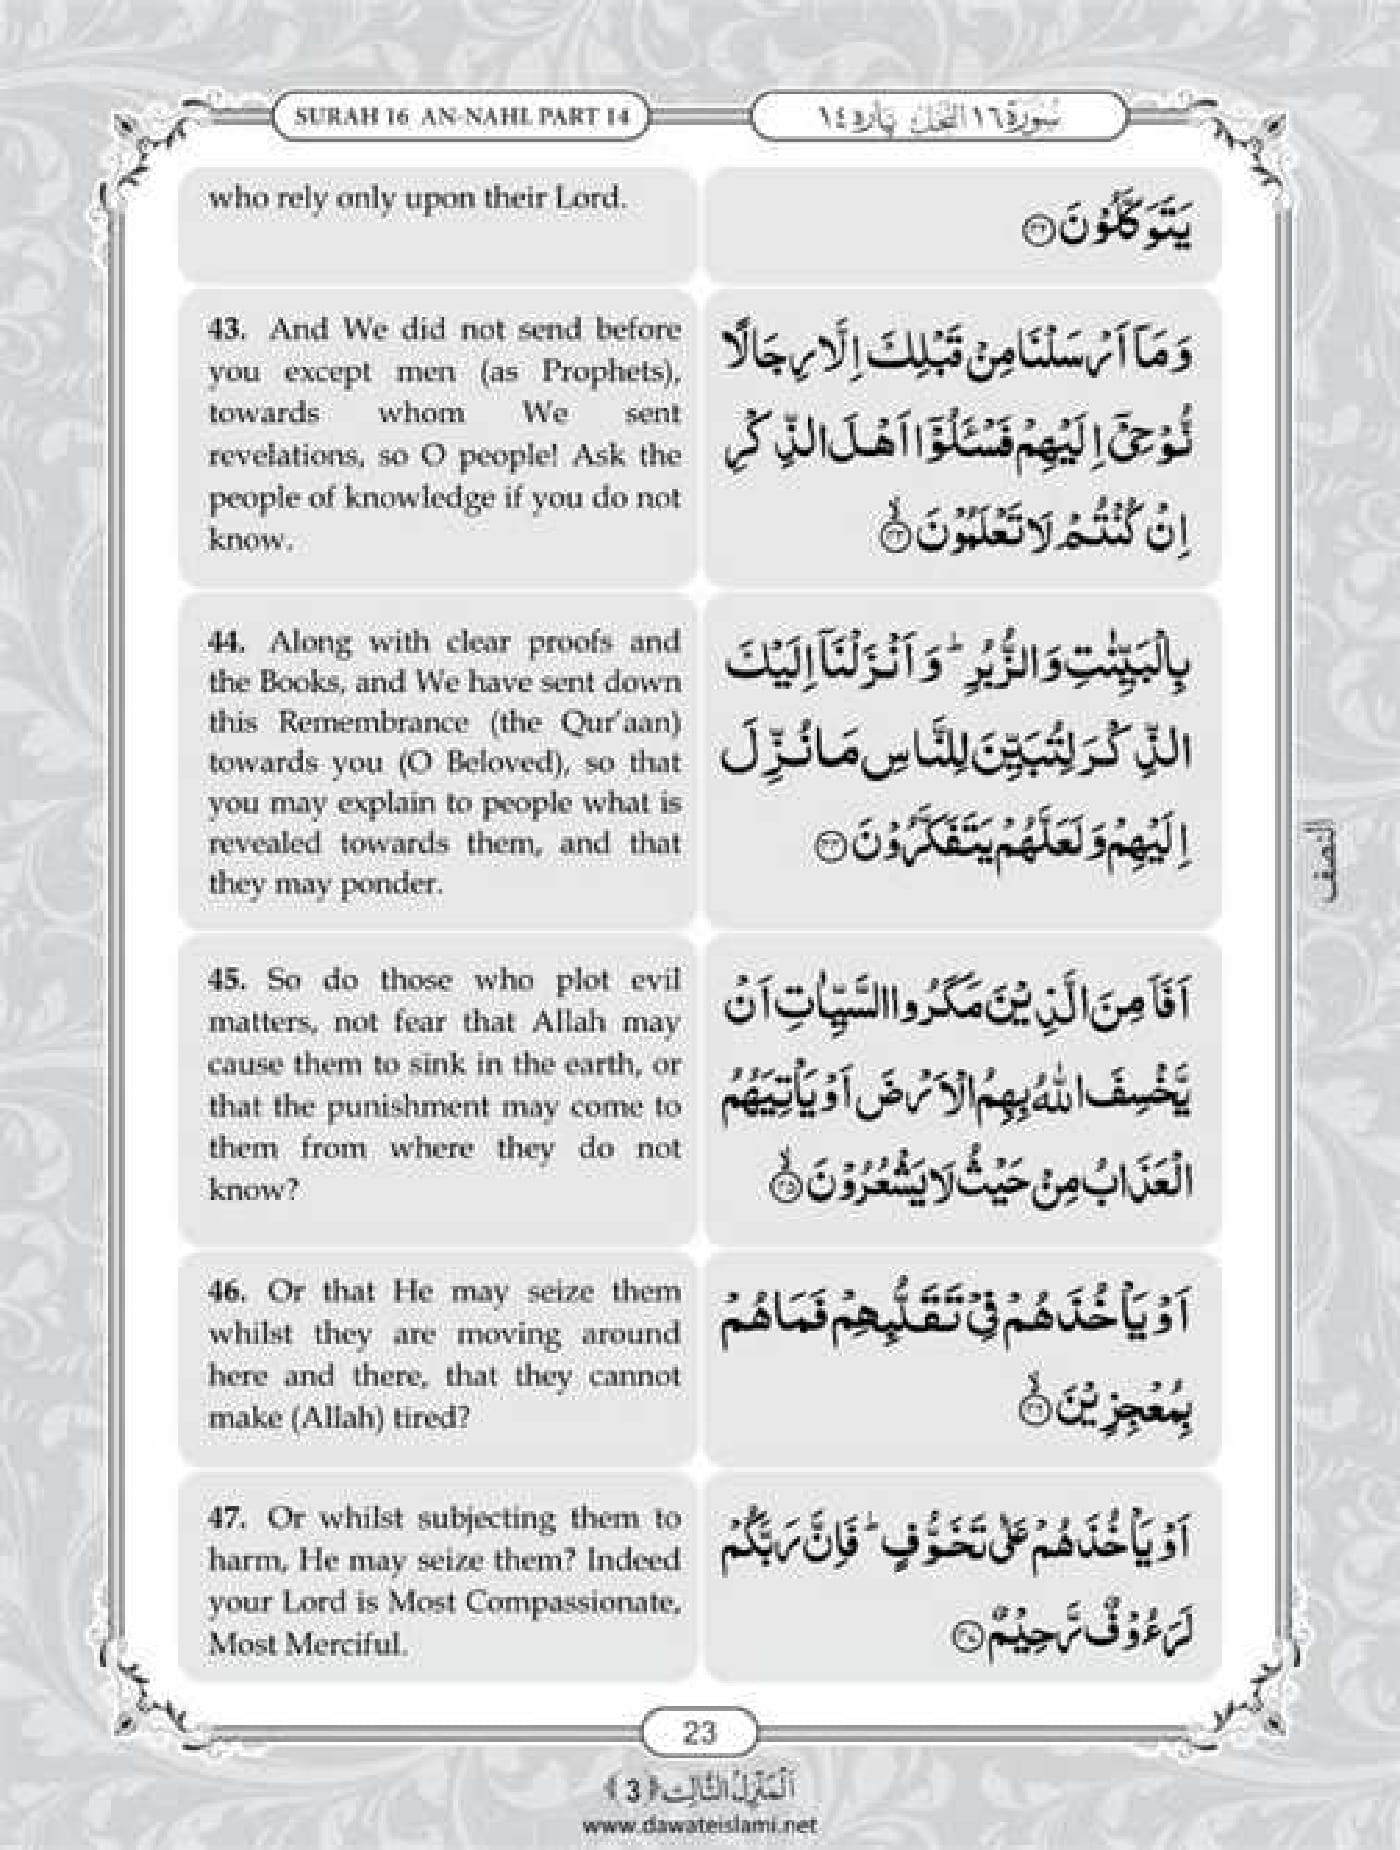 SURAH 16 AN-NAHL PART 14
سُوْرَة ١٦ النَّحْل پاره ١٤
who rely only upon their Lord.
يَتَوَكَّلُوْنَ ۝۴۲
43. And We did not send before
you except men (as Prophets),
towards whom We sent
revelations, so O people! Ask the
people of knowledge if you do not
know.
وَمَاۤ اَرْسَلْنَا مِنْ قَبْلِكَ اِلَّا رِجَالًا
نُّوْحِیْۤ اِلَیْهِمْ فَسْـَٔلُوْۤا اَهْلَ الذِّكْرِ
اِنْ كُنْتُمْ لَا تَعْلَمُوْنَۙ ۝۴۳
44. Along with clear proofs and
the Books, and We have sent down
this Remembrance (the Qur'aan)
towards you (O Beloved), so that
you may explain to people what is
revealed towards them, and that
they may ponder.
بِالْبَیِّنٰتِ وَالزُّبُرِؕ وَاَنْزَلْنَاۤ اِلَیْكَ
الذِّكْرَ لِتُبَیِّنَ لِلنَّاسِ مَا نُزِّلَ
اِلَیْهِمْ وَلَعَلَّهُمْ یَتَفَكَّرُوْنَ ۝۴۴
45. So do those who plot evil
matters, not fear that Allah may
cause them to sink in the earth, or
that the punishment may come to
them from where they do not
know?
اَفَاَمِنَ الَّذِیْنَ مَكَرُوا السَّیِّاٰتِ اَنْ
یَّخْسِفَ اللّٰهُ بِهِمُ الْاَرْضَ اَوْ یَاْتِیَهُمُ
الْعَذَابُ مِنْ حَیْثُ لَا یَشْعُرُوْنَۙ ۝۴۵
46. Or that He may seize them
whilst they are moving around
here and there, that they cannot
make (Allah) tired?
اَوْ یَاْخُذَهُمْ فِیْ تَقَلُّبِهِمْ فَمَا هُمْ
بِمُعْجِزِیْنَۙ ۝۴۶
47. Or whilst subjecting them to
harm, He may seize them? Indeed
your Lord is Most Compassionate,
Most Merciful.
اَوْ یَاْخُذَهُمْ عَلٰی تَخَوُّفٍؕ فَاِنَّ رَبَّكُمْ
لَرَءُوْفٌ رَّحِیْمٌ ۝۴۷
النصف
23
اَلْمَنْزِلُ الثَّالِث ﴿3﴾
www.dawateislami.net